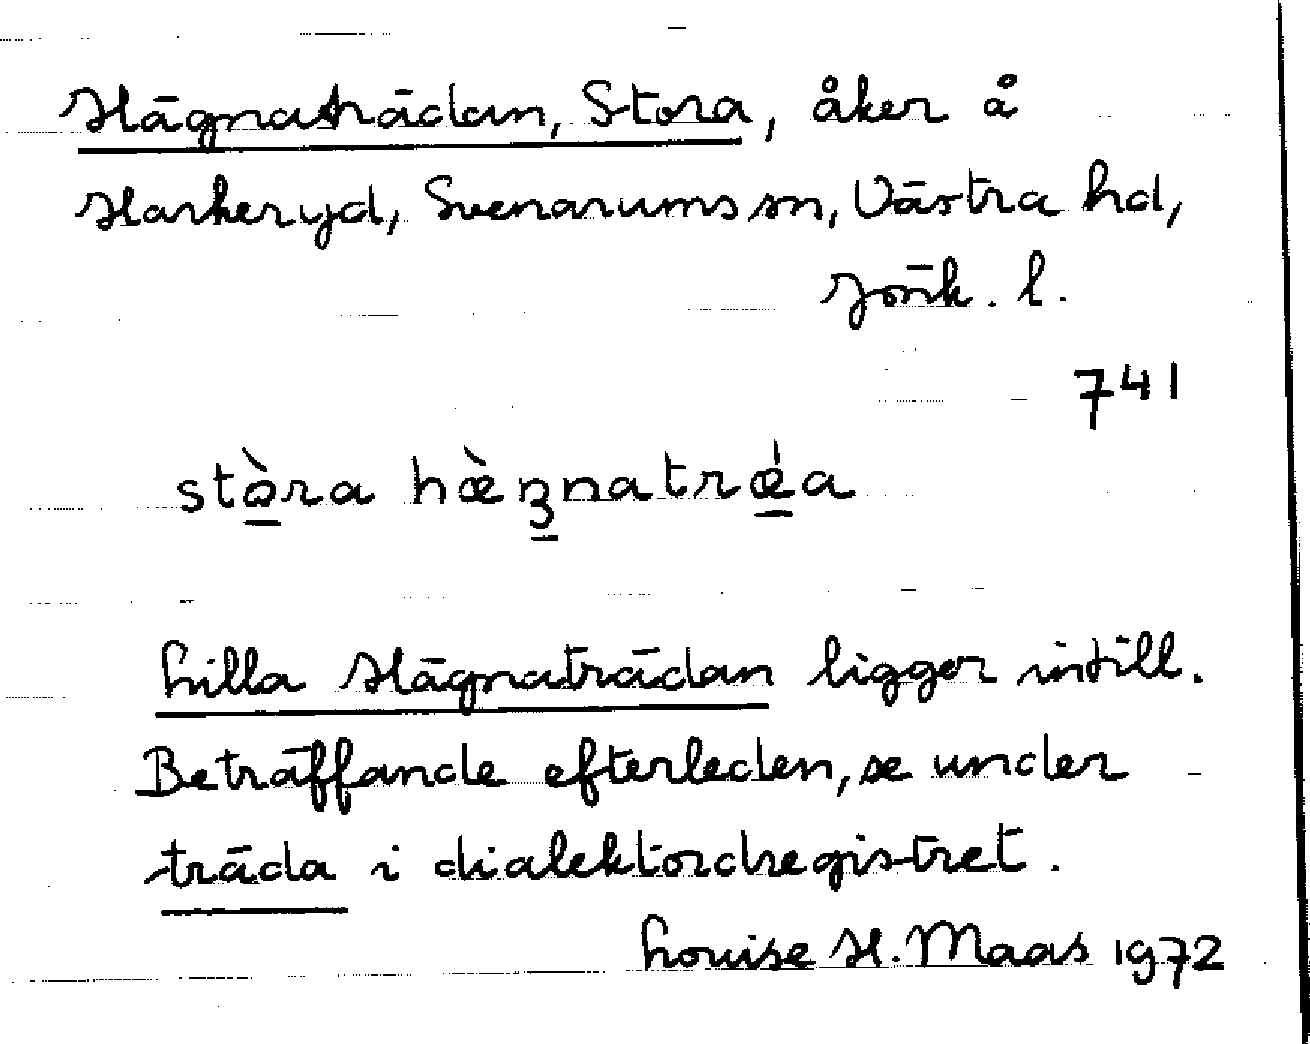 Hägnaträdan, Stora, åker å
Harkeryd, Svenarums sn, Västra hd,
Jönk. l.
741
stò̱ra hæ̀ȵʒ̱natrǽ̱a
Lilla Hägnaträdan ligger intill.
Beträffande efterleden, se under
träda i dialektordregistret.
Louise H. Maas 1972